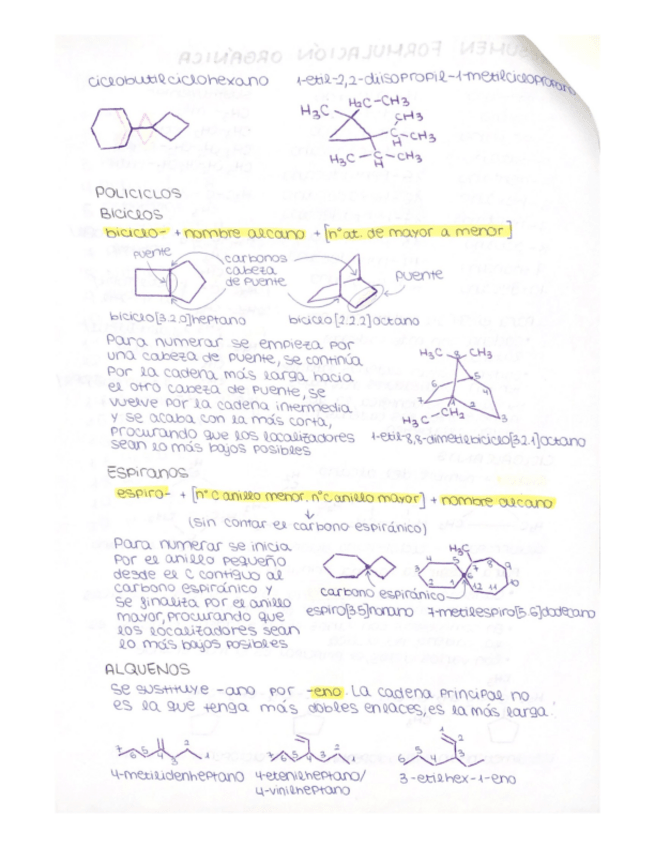 ciclobutilciclohexano
1-etil-2,2-diisopropil-1-metilciclopropano
H3C
H2C-CH3
CH3
C-CH3
H
H3C-C-CH3
H
POLICICLOS
BICICLOS
biciclo- + nombre alcano + [nº at. de mayor a menor]
puente
carbonos
cabeza
de puente
puente
biciclo[3.2.0]heptano
biciclo[2.2.2]octano
Para numerar se empieza por
una cabeza de puente, se continúa
por la cadena más larga hacia
el otro cabeza de puente, se
vuelve por la cadena intermedia
y se acaba con la más corta,
procurando que los localizadores
sean lo más bajos posibles
H3C 8 CH3
6 5 4
7 1 2 3
H3C-CH2
1-etil-8,8-dimetilbiciclo[3.2.1]octano
ESPIRANOS
espiro- + [nº C anillo menor. nº C anillo mayor] + nombre alcano
(sin contar el carbono espiránico)
Para numerar se inicia
por el anillo pequeño
desde el C contiguo al
carbono espiránico y
se finaliza por el anillo
mayor, procurando que
los localizadores sean
lo más bajos posibles
H3C
4 5 7 8 9
3 6 10
2 1 12 11
carbono espiránico
espiro[3.5]nonano
7-metilespiro[5.6]dodecano
ALQUENOS
Se sustituye -ano por -eno. La cadena principal no
es la que tenga más dobles enlaces, es la más larga.
7 6 5 4 3 2 1
4-metilidenheptano
7 6 5 4 3 2 1
4-etenilheptano/
4-vinilheptano
6 5 4 3 2 1
3-etilhex-1-eno